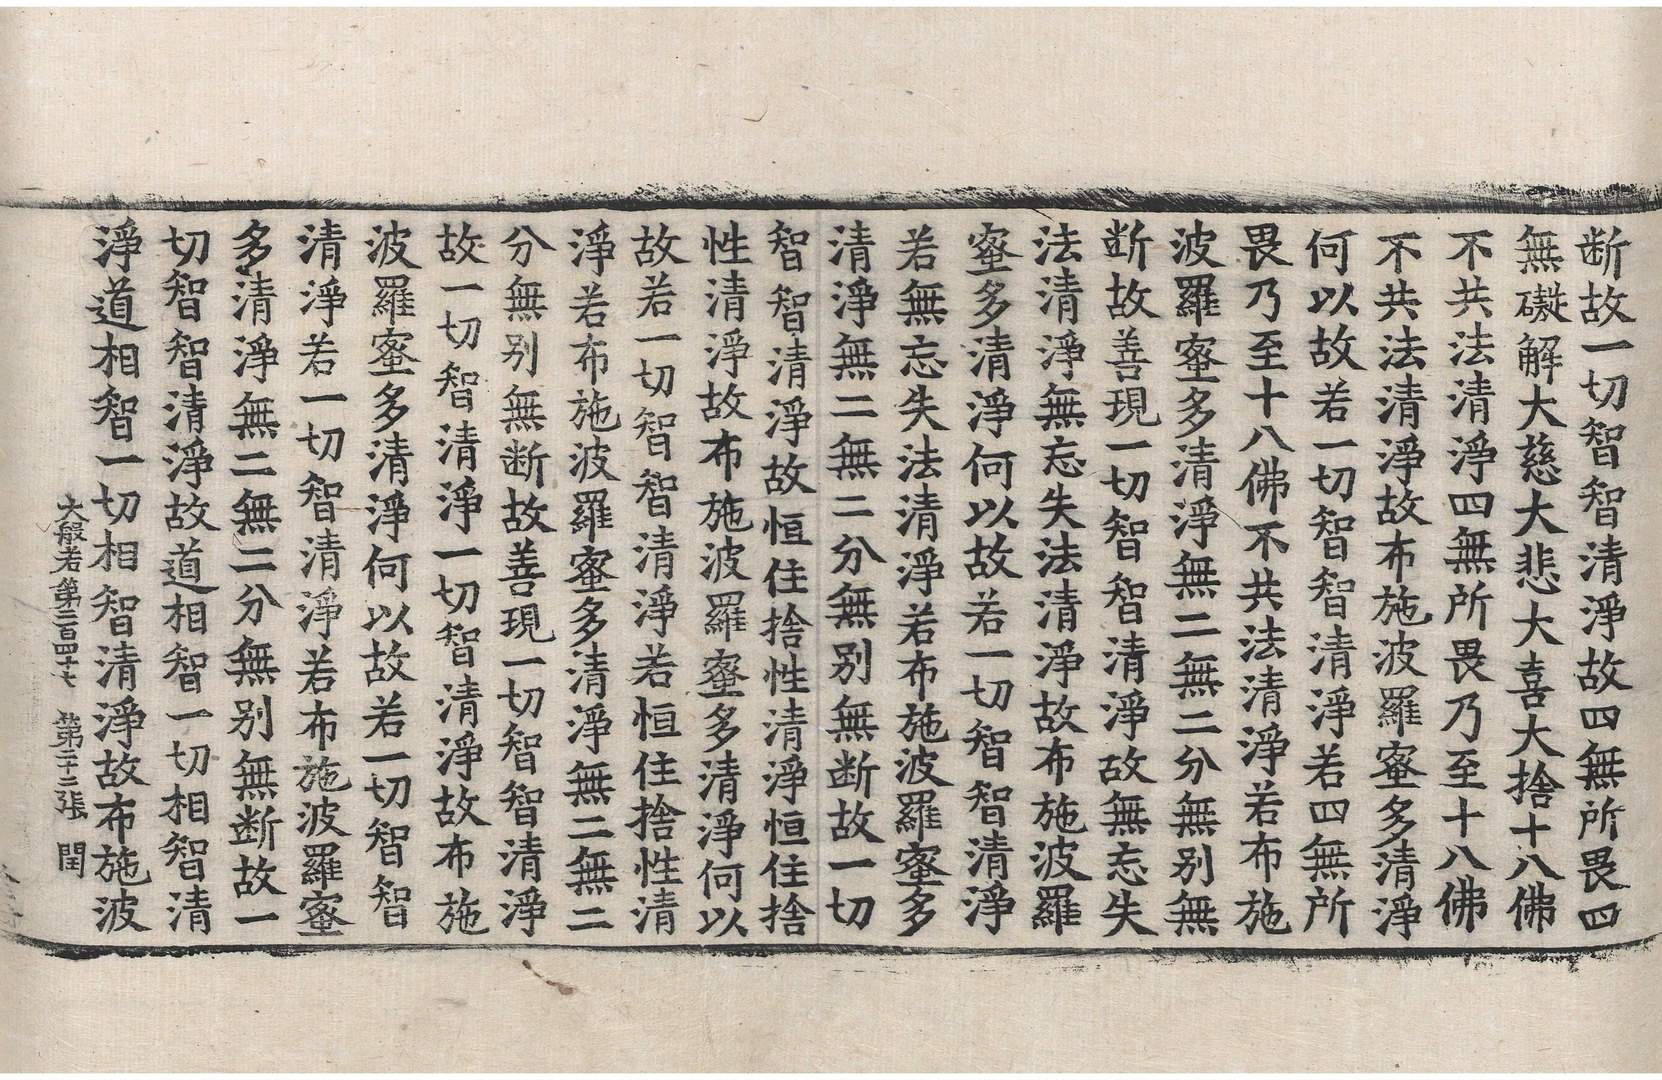 断故一切智智清淨故四無所畏四
無礙解大慈大悲大喜大捨十八佛
不共法清淨四無所畏乃至十八佛
不共法清淨故布施波羅蜜多清淨
何以故若一切智智清淨若四無所
畏乃至十八佛不共法清淨若布施
波羅蜜多清淨無二無二分無别無
断故善現一切智智清淨故無忘失
法清淨無忘失法清淨故布施波羅
蜜多清淨何以故若一切智智清淨
若無忘失法清淨若布施波羅蜜多
清淨無二無二分無别無断故一切
智智清淨故恒住捨性清淨恒住捨
性清淨故布施波羅蜜多清淨何以
故若一切智智清淨若恒住捨性清
淨若布施波羅蜜多清淨無二無二
分無别無断故善現一切智智清淨
故一切智清淨一切智清淨故布施
波羅蜜多清淨何以故若一切智智
清淨若一切智清淨若布施波羅蜜
多清淨無二無二分無别無断故一
切智智清淨故道相智一切相智清
淨道相智一切相智清淨故布施波
大般若第二百四十七 第二十二張 閏